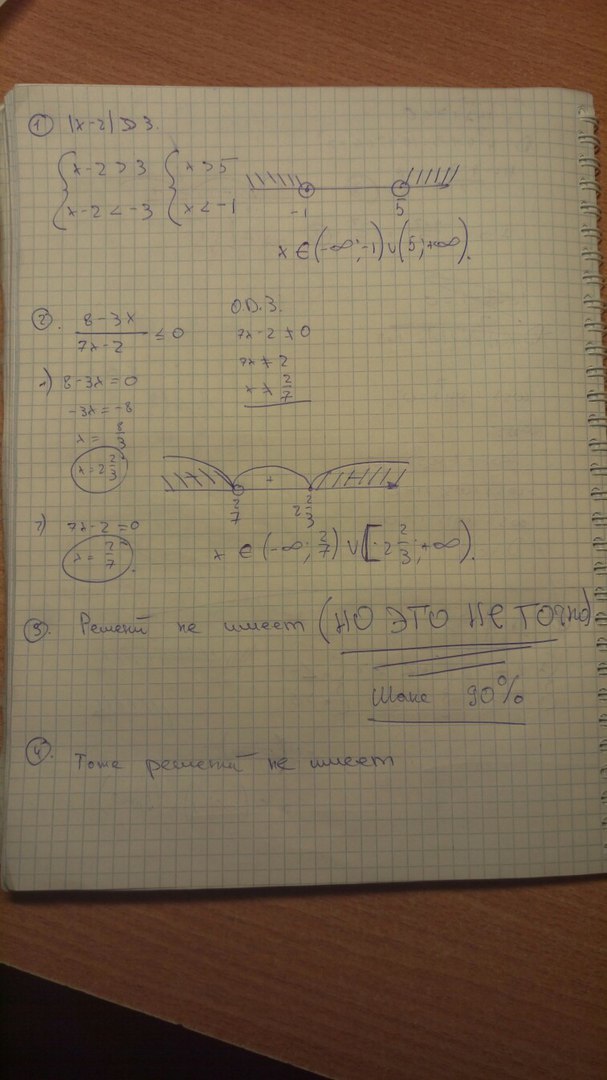 1) |x-2| > 3.
{ x-2 > 3 { x > 5
x-2 < -3 x < -1
-1 5
x ∈ (-∞; -1) ∪ (5; +∞).
2. (8-3x)/(7x-2) ≤ 0
О.D.З.
7x-2 ≠ 0
7x ≠ 2
x ≠ 2/7
1) 8-3x = 0
-3x = -8
x = 8/3
x = 2 2/3
+
2/7 2 2/3
2) 7x-2 = 0
x = 2/7.
x ∈ (-∞; 2/7) ∪ [2 2/3; +∞).
3. Решений не имеет (НО ЭТО НЕ ТОЧНО)
Шанс 90%
4. Тоже решений не имеет